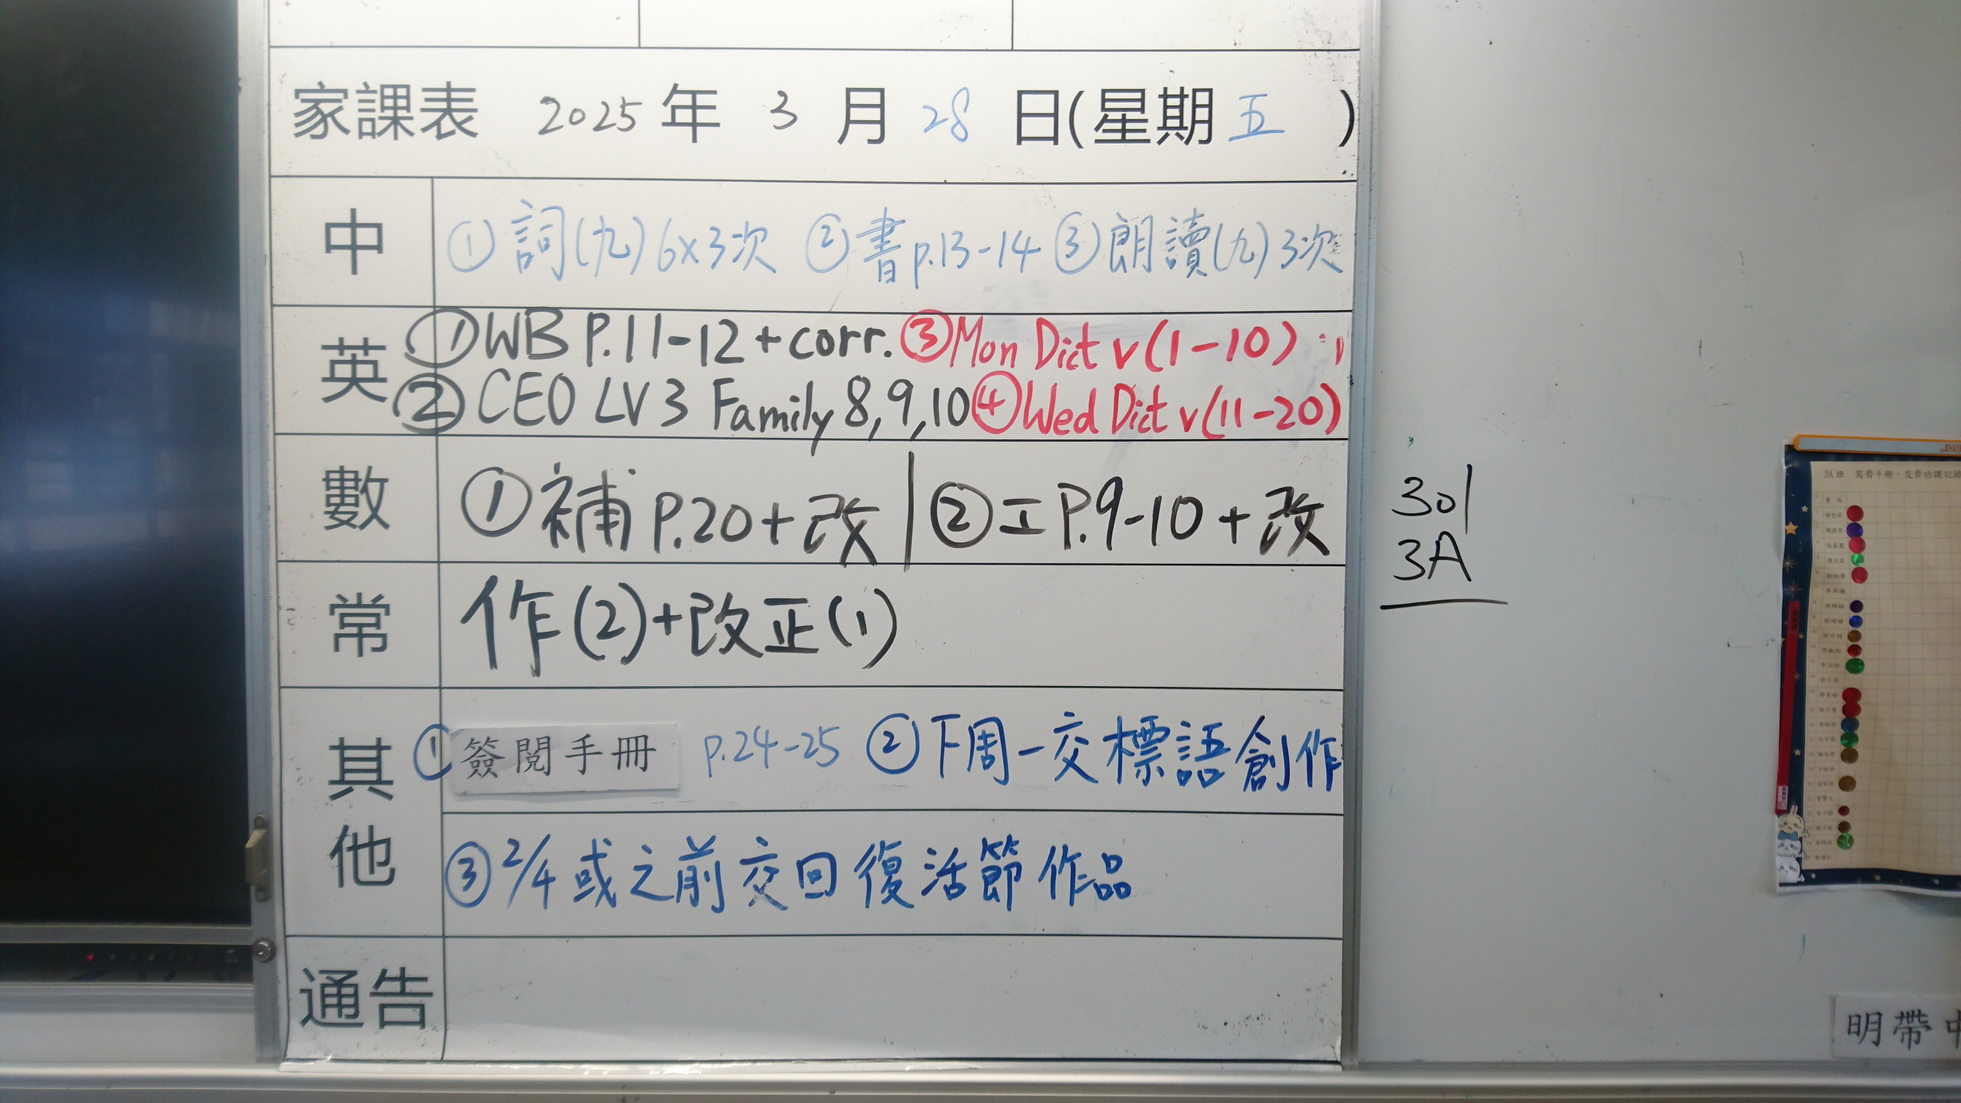 家課表 2025 年 3 月 28 日(星期五)
中 ①詞(九)6x3次 ②書p.13-14 ③朗讀(九)3次
英 ①WB P.11-12+corr. ③Mon Dict v(1-10)
②CEO LV3 Family 8,9,10 ④Wed Dict v(11-20)
數 ①補 P.20+改 | ②工P.9-10+改
常 作(2)+改正(1)
其他 ①簽閱手冊 p.24-25 ②下周一交標語創作
③2/4或之前交回復活節作品
通告
301
3A
明帶中